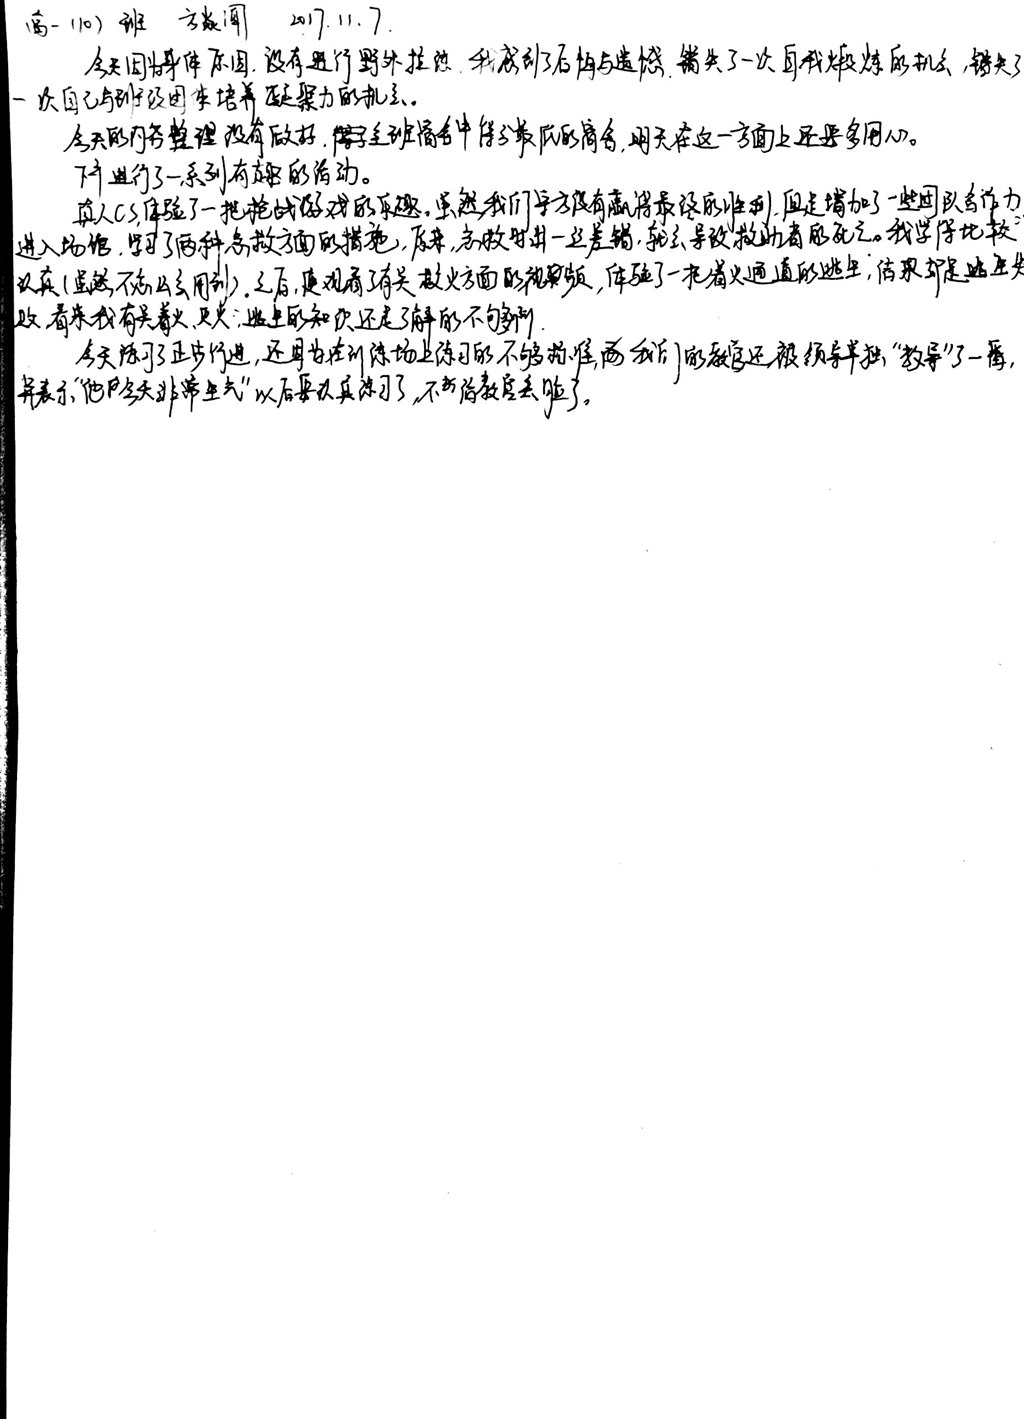 高一(10)班 方焱闻 2017.11.7.
今天因为身体原因,没有进行野外拉练,我感到了后悔与遗憾,错失了一次自我煅炼的机会,错失了
一次自己与班级团体培养凝聚力的机会。
今天的内务整理没有做好,全班宿舍中得分最低的宿舍,明天在这一方面上还要多用心。
下午进行了一系列有趣的活动。
真人CS,体验了一把枪战游戏的乐趣。虽然我们学方没有赢得最终的胜利,但是增加了一些团队合作力,
进入场馆,学习了两种急救方面的措施,原来,急救时若一丝差错,就会导致救助者的死亡。我学得比较
认真(虽然不怎么会用到)。之后,便观看了有关救火方面的视频,体验了一把着火通道的逃生,结果却是逃生失
败,看来我有关着火、灭火,逃生的知识还是了解的不够多啊。
今天练习了正步行进,还因为在训练场上练习的不够标准,而我们的教官还被领导单独“教导”了一番,
并表示“他今天非常生气”以后要认真练习了,不要给教官丢脸了。